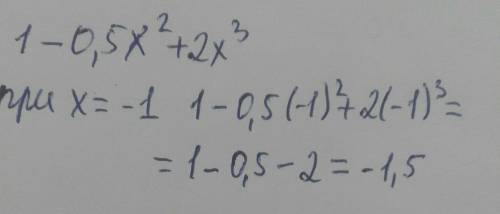 1 - 0,5x² + 2x³
при x = -1 1 - 0,5(-1)² + 2(-1)³ =
= 1 - 0,5 - 2 = -1,5